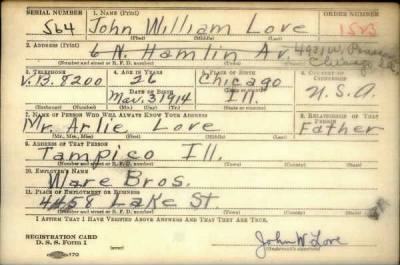 SERIAL NUMBER 1. NAME (Print) ORDER NUMBER
564 John William Love 1523
(First) (Middle) (Last)
2. ADDRESS (Print)
6 N. Hamlin Av. 4921 W.
Chicago
(Number and street or R. F. D. number) (Town) (County) (State)
3. TELEPHONE 4. AGE IN YEARS 5. PLACE OF BIRTH 6. COUNTRY OF CITIZENSHIP
V.B. 8200 26 Chicago
DATE OF BIRTH
Mar. 3 1914 Ill. U.S.A.
(Mo.) (Day) (Yr.) (State or country)
7. NAME OF PERSON WHO WILL ALWAYS KNOW YOUR ADDRESS 8. RELATIONSHIP OF THAT PERSON
Mr. Arlie Love Father
(Mr., Mrs., Miss) (First) (Middle) (Last)
9. ADDRESS OF THAT PERSON
Tampico Ill.
(Number and street or R. F. D. number) (Town) (County) (State)
10. EMPLOYER'S NAME
Ware Bros.
11. PLACE OF EMPLOYMENT OR BUSINESS
4458 Lake St.
(Number and street or R. F. D. number) (Town) (County) (State)
I AFFIRM THAT I HAVE VERIFIED ABOVE ANSWERS AND THAT THEY ARE TRUE.
REGISTRATION CARD
D. S. S. Form 1
John W Love
(Registrant's signature)